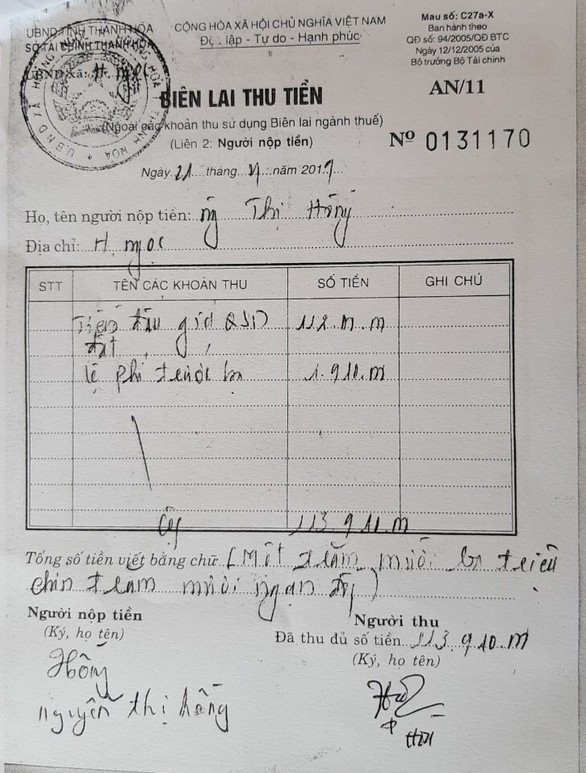 UBND TỈNH THANH HÓA
SỞ TÀI CHÍNH THANH HÓA
UBND Xã: H. ngọc
CỘNG HÒA XÃ HỘI CHỦ NGHĨA VIỆT NAM
Độc lập - Tự do - Hạnh phúc
Mau số: C27a-X
Ban hành theo
QĐ số: 94/2005/QĐ BTC
Ngày 12/12/2005 của
Bộ trưởng Bộ Tài chính
BIÊN LAI THU TIỀN
AN/11
(Ngoài các khoản thu sử dụng Biên lai ngành thuế)
(Liên 2: Người nộp tiền)
Nº 0131170
Ngày 21 tháng năm 201
Họ, tên người nộp tiền: Thị Hồng
Địa chỉ: H. ngọc
STT TÊN CÁC KHOẢN THU SỐ TIỀN GHI CHÚ
Tiền đấu giá QSD 112.m.m
đất
lệ phí trước bạ 1.910.m
Cộng 113.910.m
Tổng số tiền viết bằng chữ (Một trăm mười ba triệu
chín trăm mười ngàn đ)
Người nộp tiền
(Ký, họ tên)
Hồng
nguyễn thị hồng
Người thu
Đã thu đủ số tiền 113.910.m
(Ký, họ tên)